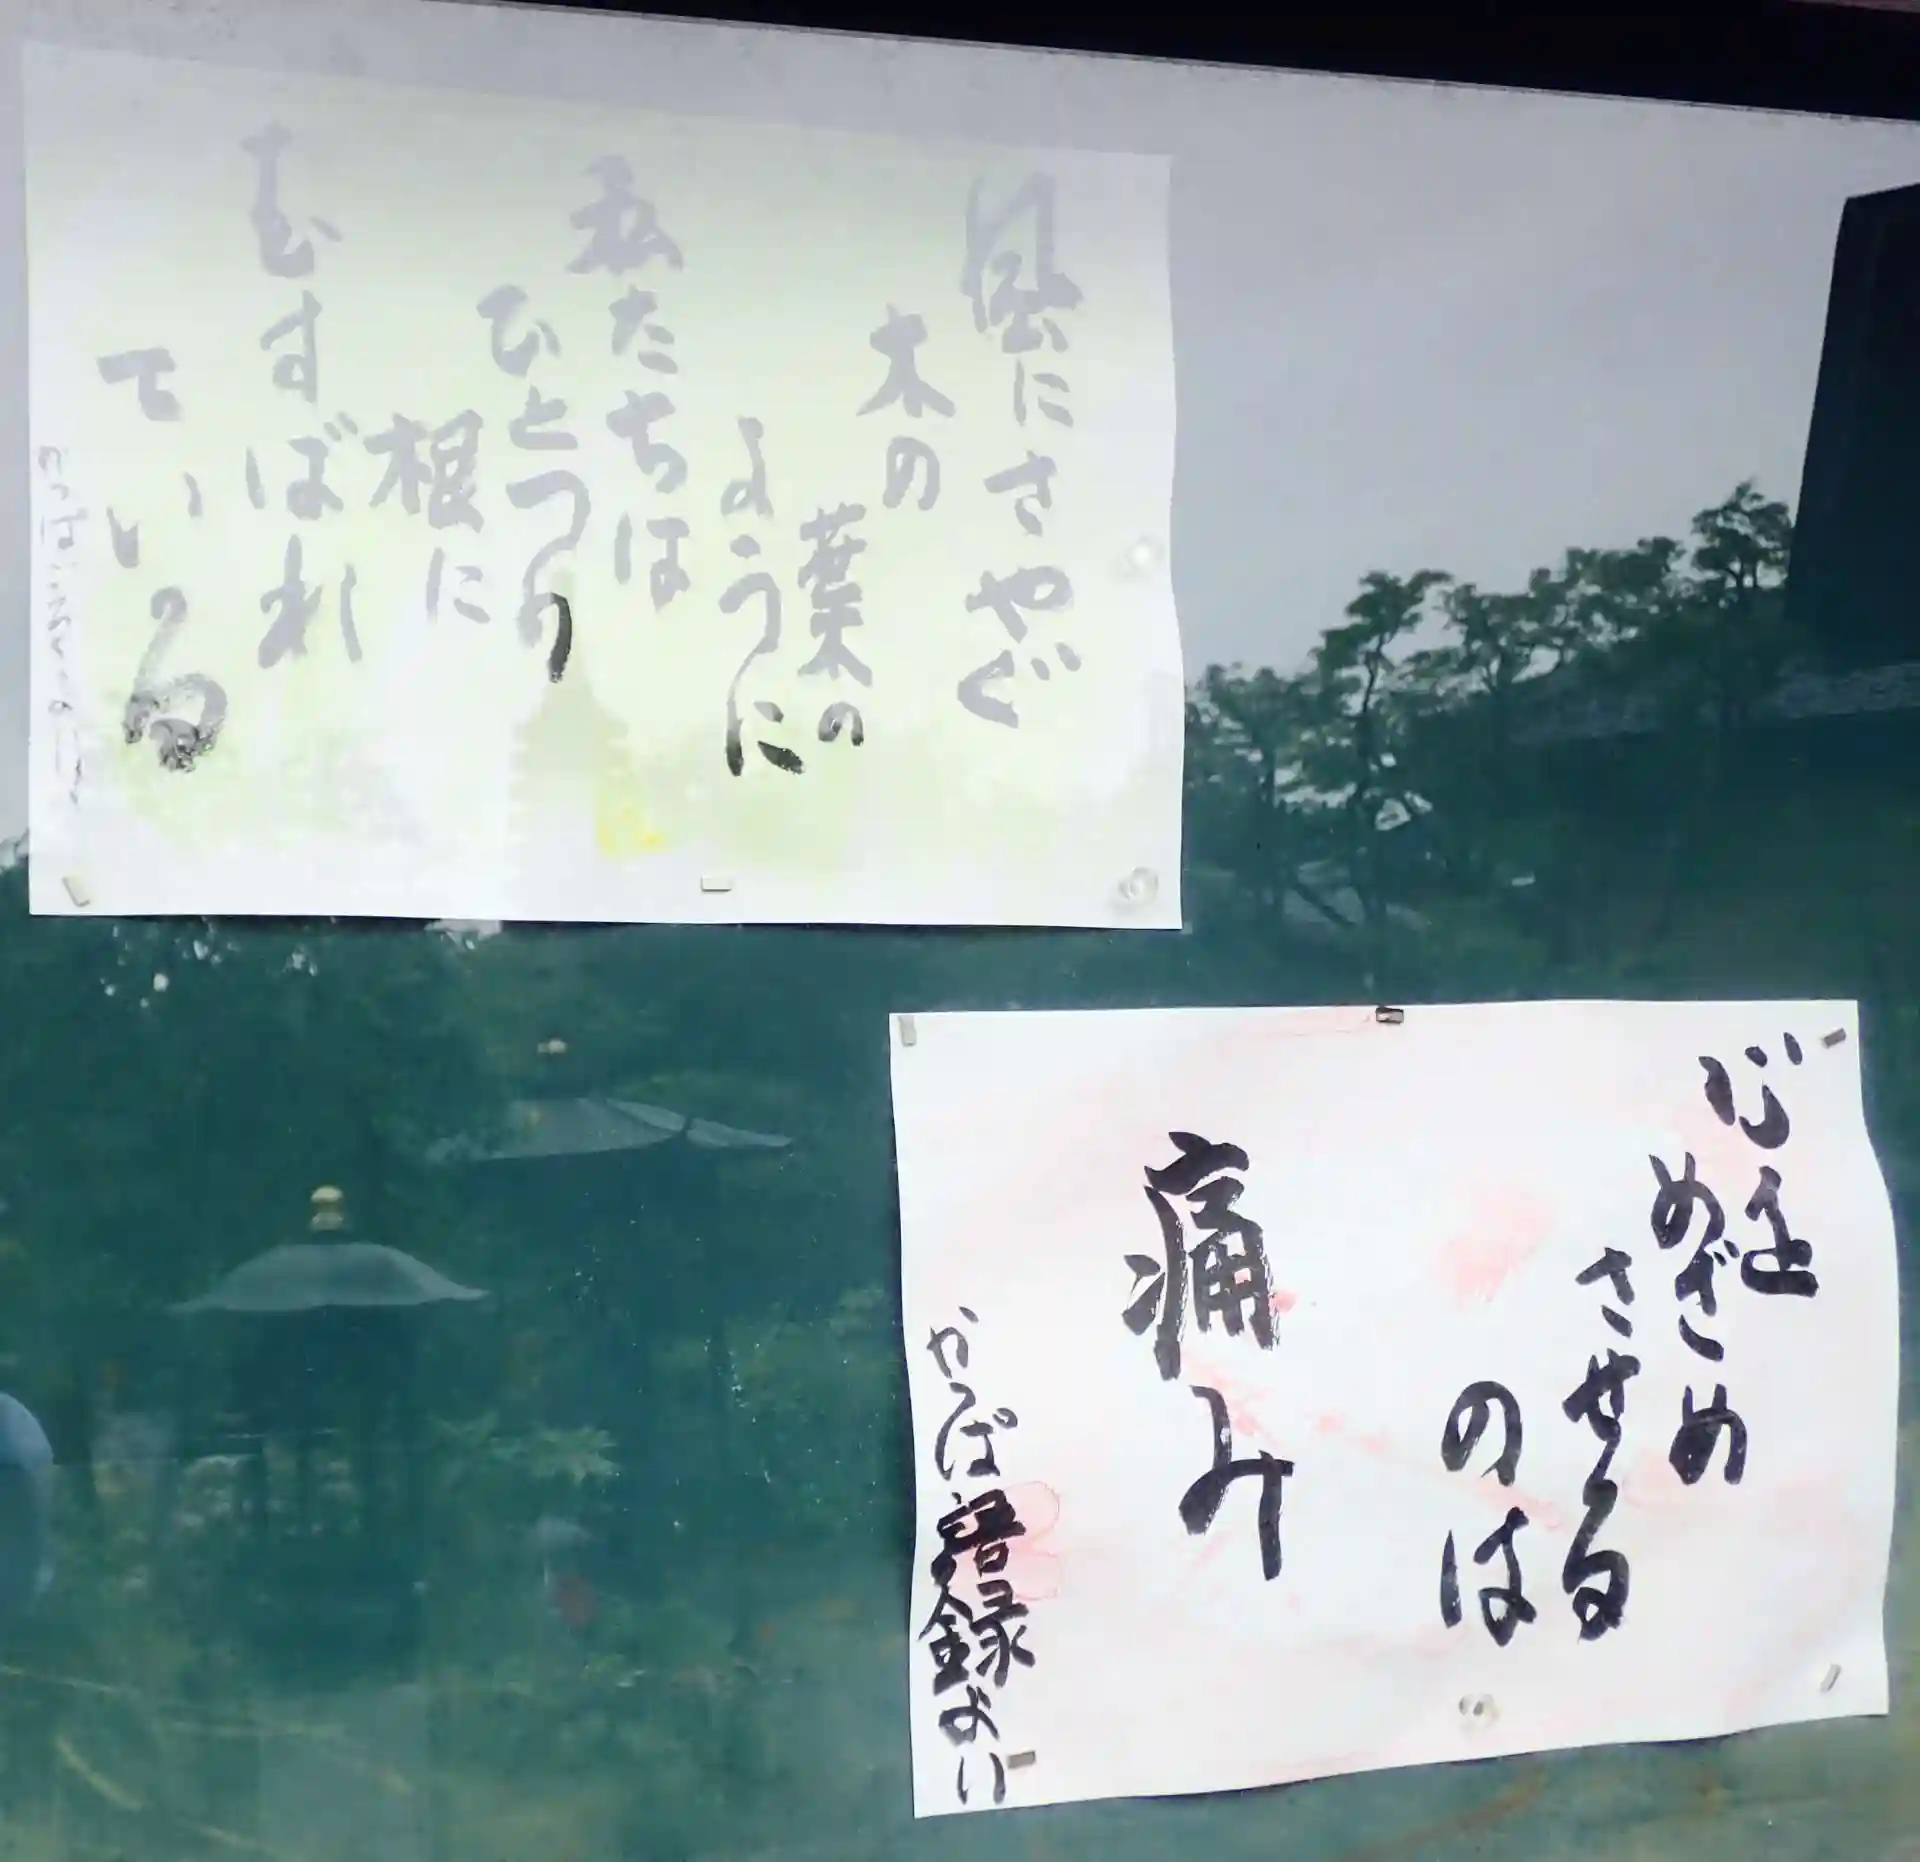 風にさやぐ
木の
葉の
ように
私たちは
ひとつの
根に
むすばれ
ている
かっぱ語録より
心を
めざめ
させる
のは
痛み
かっぱ語録より